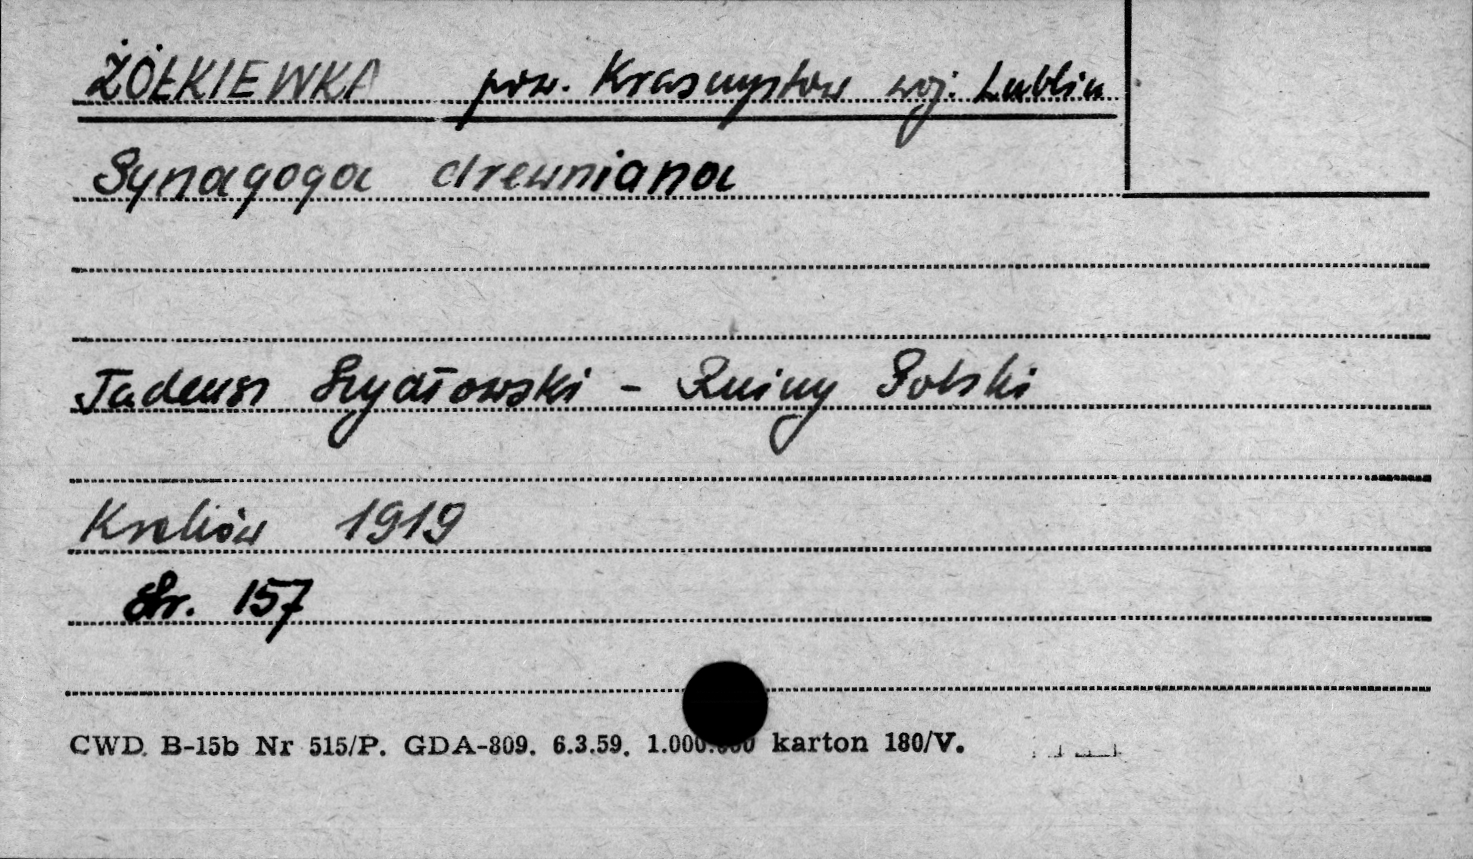 ŻÓŁKIEWKA pow. Krasnystaw woj. Lublin
Synagoga drewniana
Tadeusz Szydłowski - Ruiny Polski
Kraków 1919
Str. 157
CWD. B-15b Nr 515/P. GDA-809. 6.3.59. 1.000.000 karton 180/V.